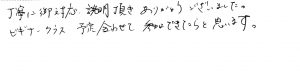 丁寧に御対応、説明頂きありがとうございました。
ビギナークラス 予定合わせて参加できたらと思います。